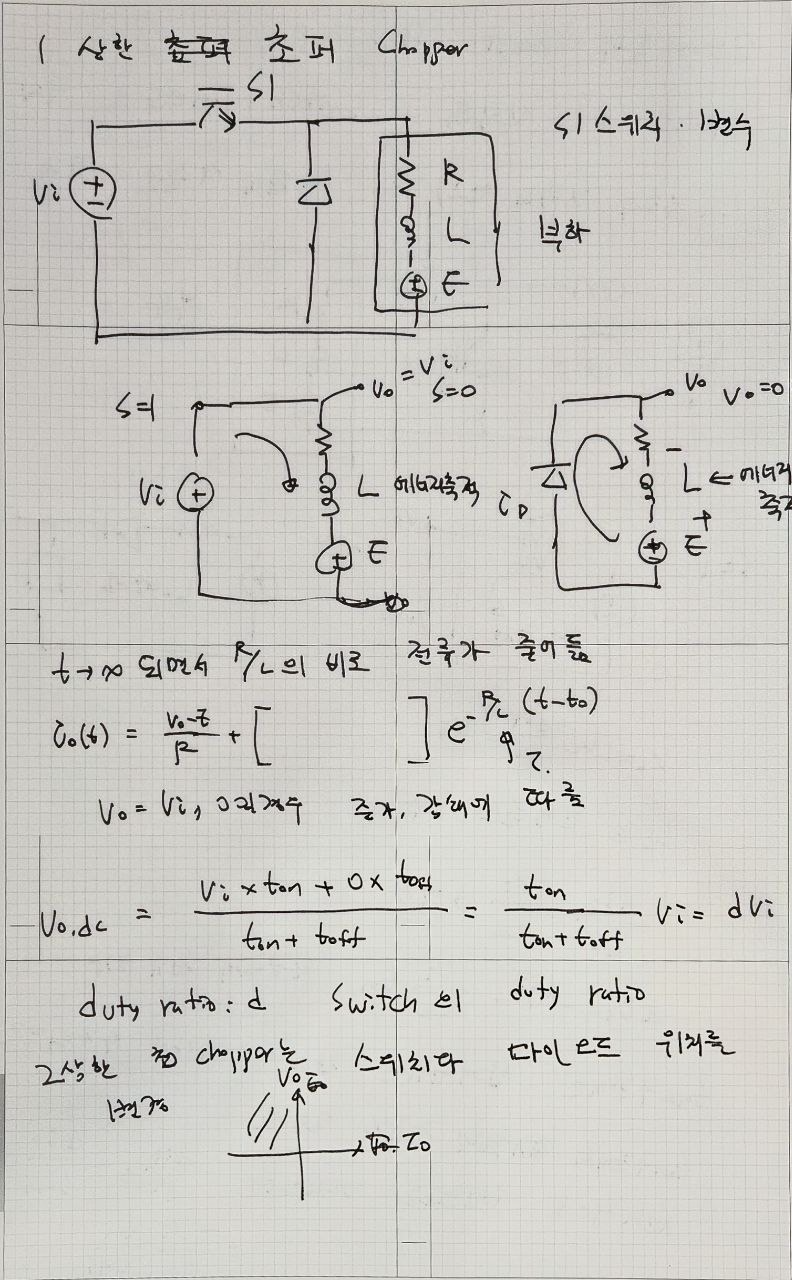 1 상한 초퍼 Chopper
S1
S1 스위치
Vi
R
L
E
부하
S=1
Vo = Vi
S=0
Vo Vo=0
Vi
L 에너지축적
E
iD
- L ← 에너지
+
E
t→∞ 되면서 R/L의 비로 전류가 줄어듦
io(t) = + [ ] e^-R/L (t-to)
τ.
Vo = Vi, 0 인경우 증가, 감쇄에 따름
Vo,dc = (Vi × ton + 0 × toff) / (ton + toff) = ton / (ton + toff) Vi = dVi
duty ratio: d Switch의 duty ratio
2상한 chopper는 스위치와 다이오드 위치를
Vo
Io